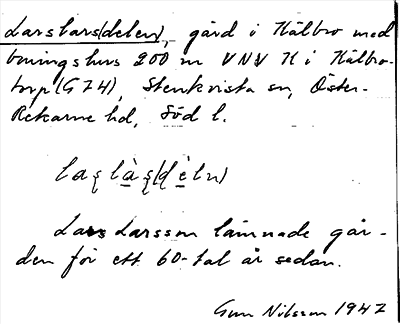 Larslars(delen), gård i Hälbro med
boningshus 200 m VNV H i Hälbro-
torp (G74), Stenkvista sn, Öster-
Rekarne hd, Söd l.
laʂ làʂ(dèln)
Lars Larsson lämnade går-
den för ett 60-tal år sedan.
Gun Nilsson 1947